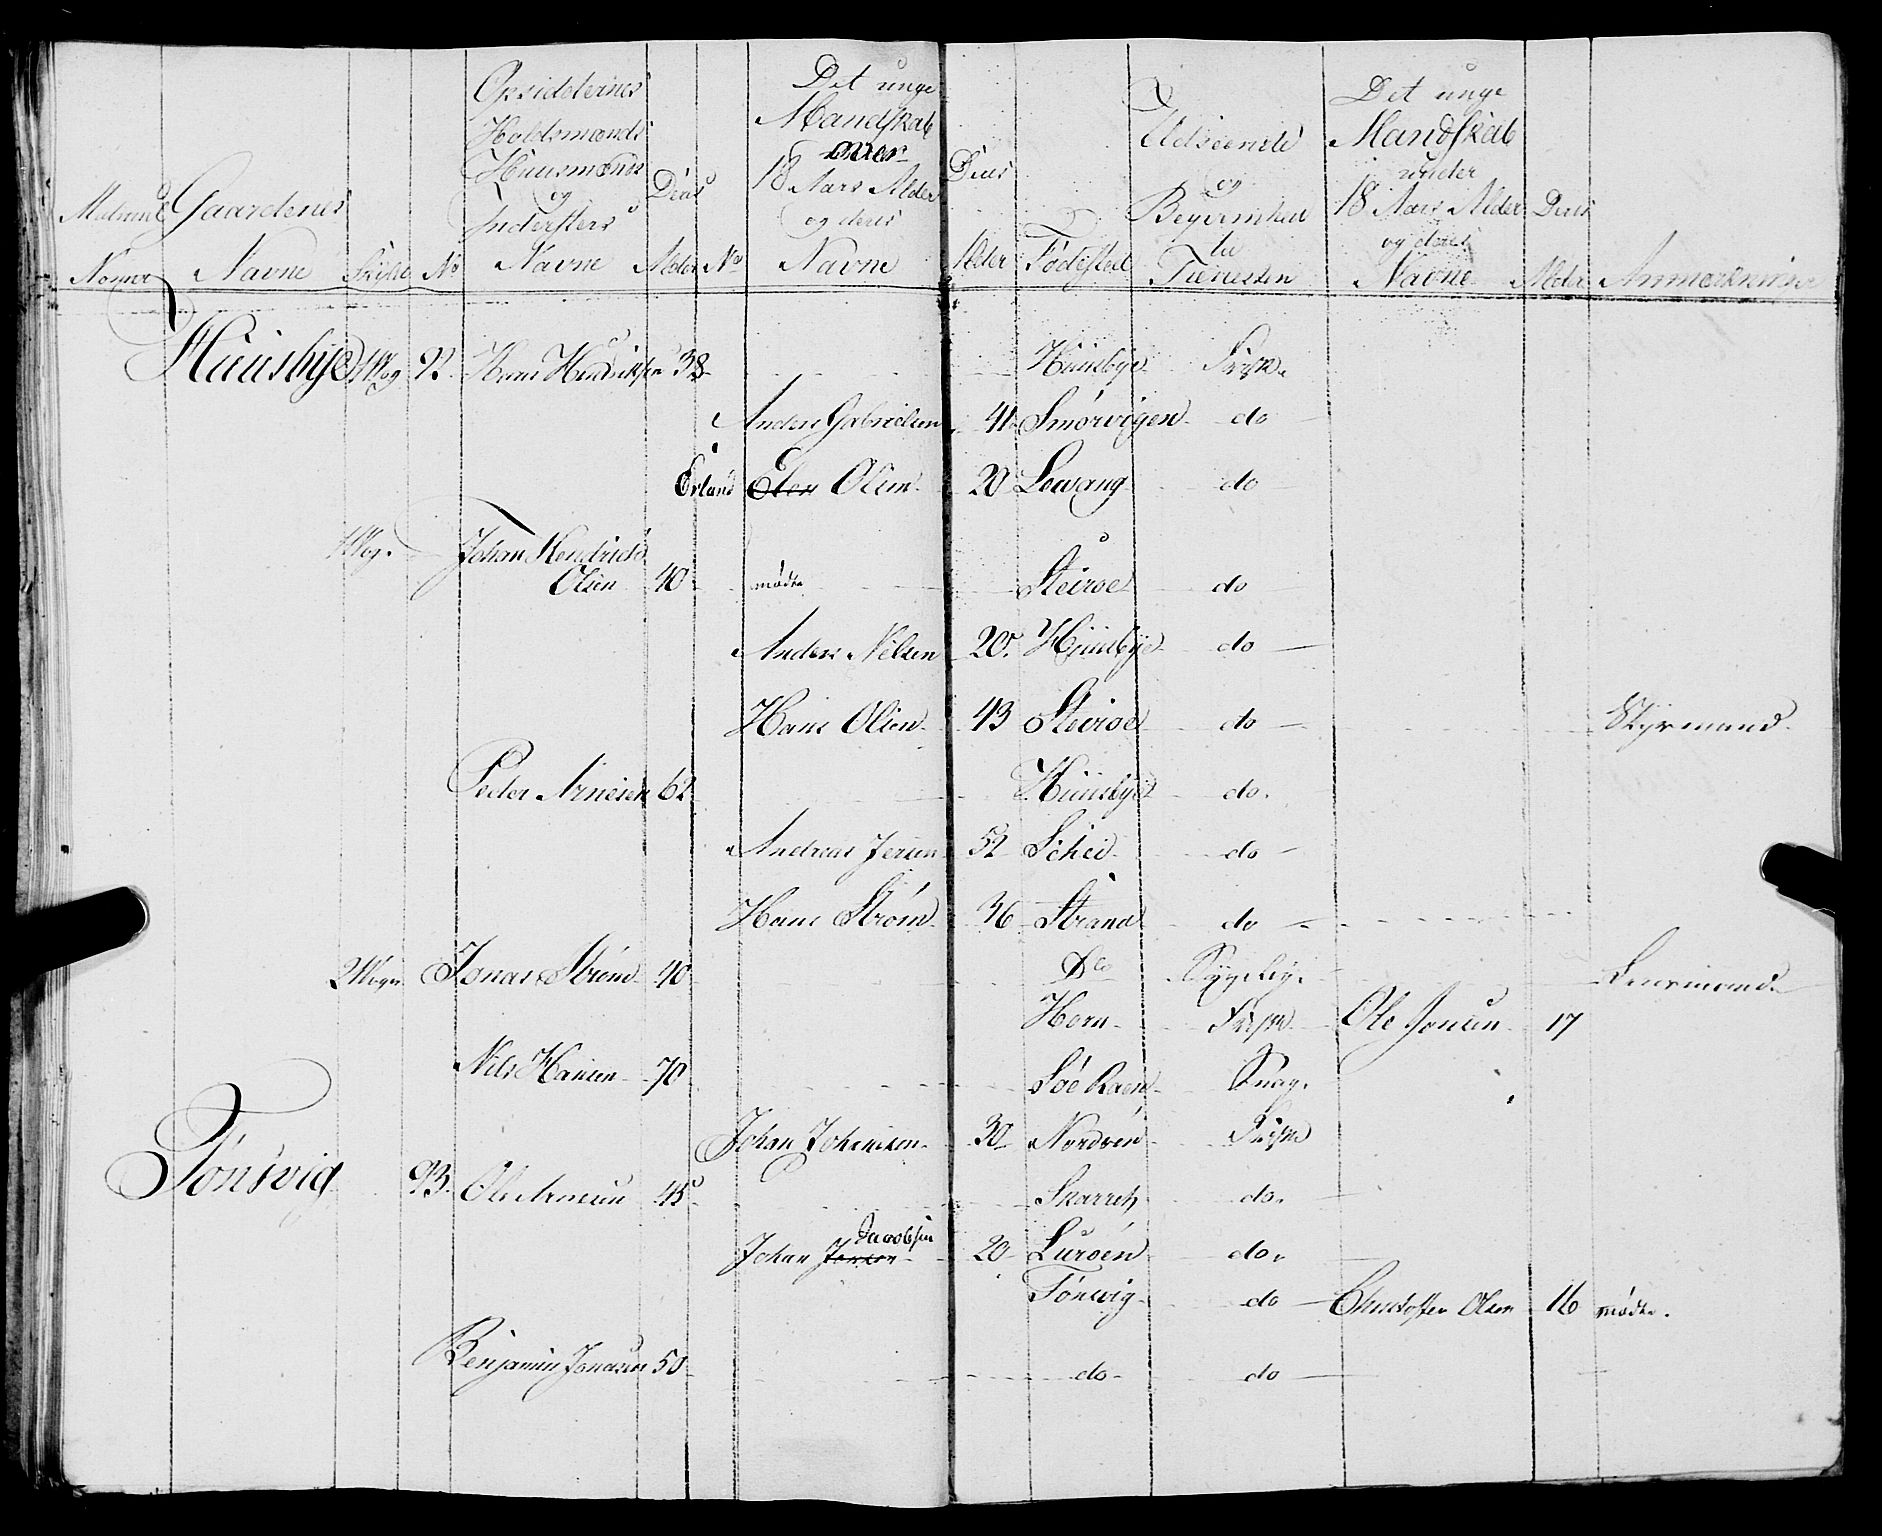 Matricul Nommer
Gaardenes Navne
Skyld
No
Opsidelernes Holdsmænds Huusmænds og Indersters Navne
Deres Alder
No
Det unge Mandskab over 18 Aars Alder og deres Navne
Deres Alder
Födested
Udseende og Beqvemhed til Tienesten
Det unge Mandskab under 18 Aars Alder og deres Navne
Deres Alder
Anmærkning
Huusbye 1 Wog 92. Hans Hendriksen 38 Huusbye Frisk
Anders Gabrielsen 41 Smörvigen do
Erland Eler Olsen 20 Lovang do
1 Wog. Johan Hendrich
Olsen 40 mödte Steiroe do
Anders Nilsen 20. Huusbye do
Hans Olsen 43 Steiroe do Styrmand
Peder Arnesen 62 Huusbye do.
Andreas Jensen 52 Schei do
Hans Ström 36 Strand do
2 Woger Jonas Ström 40 Do Sygelig. Lensmand
Horn Frisk Ole Jonsen 17
Nils Hansen 70 Söe Raen Svag.
Johan Johansen 30 Nordvin Frisk
Tönsvig 93. Ole Arnesen 45 Skarret do.
Jacobsen
Johan Jonsen 20 Luroén do.
Tönsvig do Christoffer Olsen 16 mödte.
Benjamin Jonasen 50 do do